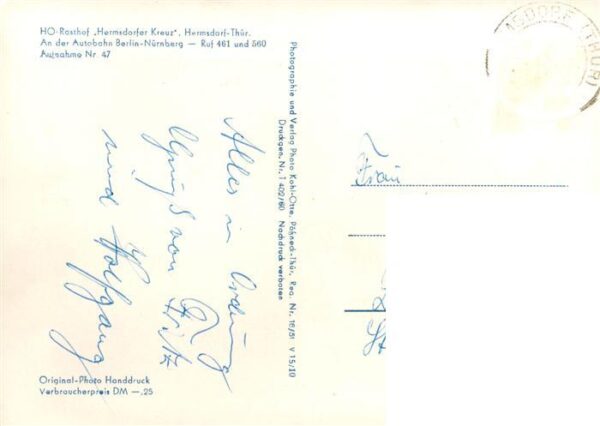 HO-Rasthof „Hermsdorfer Kreuz", Hermsdorf-Thür.
An der Autobahn Berlin-Nürnberg — Ruf 461 und 560
Aufnahme Nr. 47
Alles in Ordnung
von Fritz
und Wolfgang
Original-Photo Handdruck
Verbraucherpreis DM —.25
Photographie und Verlag Photo Kohl-Otte, Pößneck-Thür. Reg. Nr. 16/51 V 15/10
Druckgen. Nr. J 402/60 Nachdruck verboten
(THÜR)
Frau